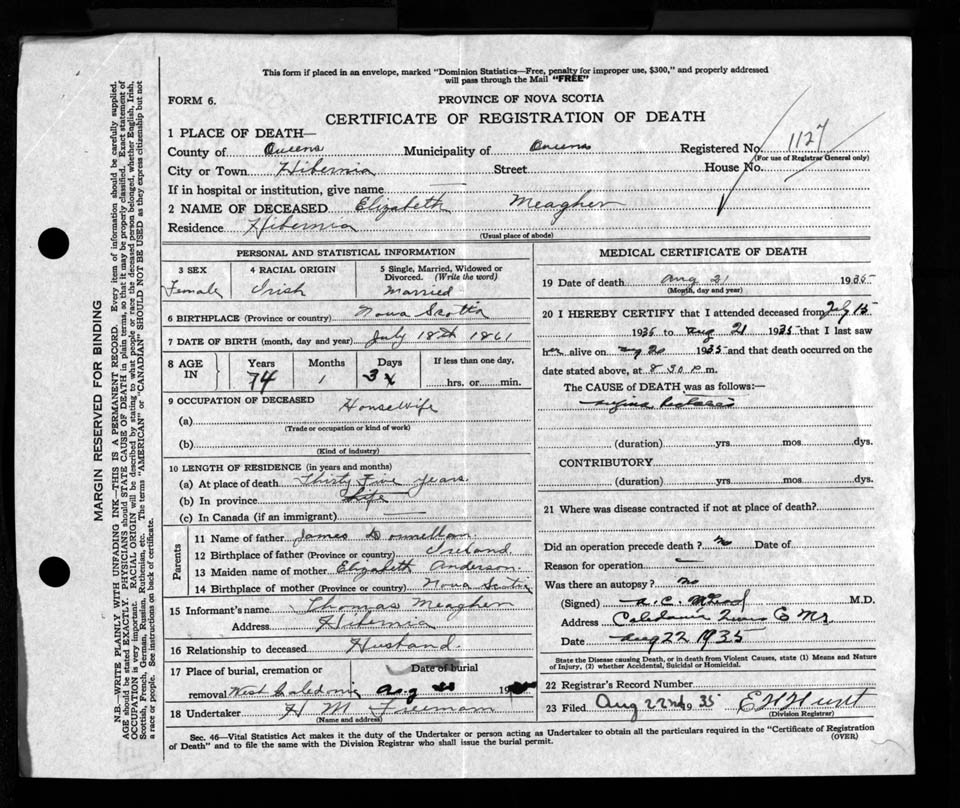 This form if placed in an envelope, marked "Dominion Statistics—Free, penalty for improper use, $300," and properly addressed
will pass through the Mail "FREE"
FORM 6.
PROVINCE OF NOVA SCOTIA
CERTIFICATE OF REGISTRATION OF DEATH
1 PLACE OF DEATH—
County of Queens Municipality of Queens Registered No. 1127
(For use of Registrar General only)
City or Town Hibernia Street House No.
If in hospital or institution, give name —
2 NAME OF DECEASED Elizabeth Meagher
Residence Hibernia
(Usual place of abode)
PERSONAL AND STATISTICAL INFORMATION
3 SEX 4 RACIAL ORIGIN 5 Single, Married, Widowed or
Divorced. (Write the word)
Female Irish Married
6 BIRTHPLACE (Province or country) Nova Scotia
7 DATE OF BIRTH (month, day and year) July 18th 1861
8 AGE IN Years Months Days If less than one day,
74 1 3 hrs. or min.
9 OCCUPATION OF DECEASED Housewife
(a)
(Trade or occupation or kind of work)
(b)
(Kind of industry)
10 LENGTH OF RESIDENCE (in years and months)
(a) At place of death Thirty Five years
(b) In province Life
(c) In Canada (if an immigrant) —
Parents
11 Name of father James Donnellan
12 Birthplace of father (Province or country) Ireland
13 Maiden name of mother Elizabeth Anderson
14 Birthplace of mother (Province or country) Nova Scotia
15 Informant's name Thomas Meagher
Address Hibernia
16 Relationship to deceased Husband
17 Place of burial, cremation or Date of burial
removal West Caledonia Aug 19
18 Undertaker H M Freeman
(Name and address)
MEDICAL CERTIFICATE OF DEATH
19 Date of death Aug 21 1935
(Month, day and year)
20 I HEREBY CERTIFY that I attended deceased from July 15
1935 to Aug 21 1935 that I last saw
her alive on Aug 20 1935 and that death occurred on the
date stated above, at 8 30 P.m.
The CAUSE of DEATH was as follows:—
Angina
(duration) yrs. mos. dys.
CONTRIBUTORY
(duration) yrs. mos. dys.
21 Where was disease contracted if not at place of death?
Did an operation precede death? no Date of
Reason for operation —
Was there an autopsy? no
(Signed) A. C. McLeod M.D.
Address Caledonia Queens Co NS
Date Aug 22 1935
State the Disease causing Death, or in death from Violent Causes, state (1) Means and Nature
of Injury, (2) whether Accidental, Suicidal or Homicidal.
22 Registrar's Record Number
23 Filed Aug 22nd 1935 E H Hunt
(Division Registrar)
Sec. 46—Vital Statistics Act makes it the duty of the Undertaker or person acting as Undertaker to obtain all the particulars required in the "Certificate of Registration
of Death" and to file the same with the Division Registrar who shall issue the burial permit. (OVER)
MARGIN RESERVED FOR BINDING
N.B.—WRITE PLAINLY WITH UNFADING INK—THIS IS A PERMANENT RECORD. Every item of information should be carefully supplied.
AGE should be stated EXACTLY. PHYSICIANS should STATE CAUSE OF DEATH in plain terms, so that it may be properly classified. Exact statement of
OCCUPATION is very important. RACIAL ORIGIN will be described by stating to what people or race the deceased person belonged, whether English, Irish,
Scottish, French, German, Russian, Ruthenian, etc. The terms "AMERICAN" or "CANADIAN" SHOULD NOT BE USED as they express citizenship but not
a race or people. See instructions on back of certificate.